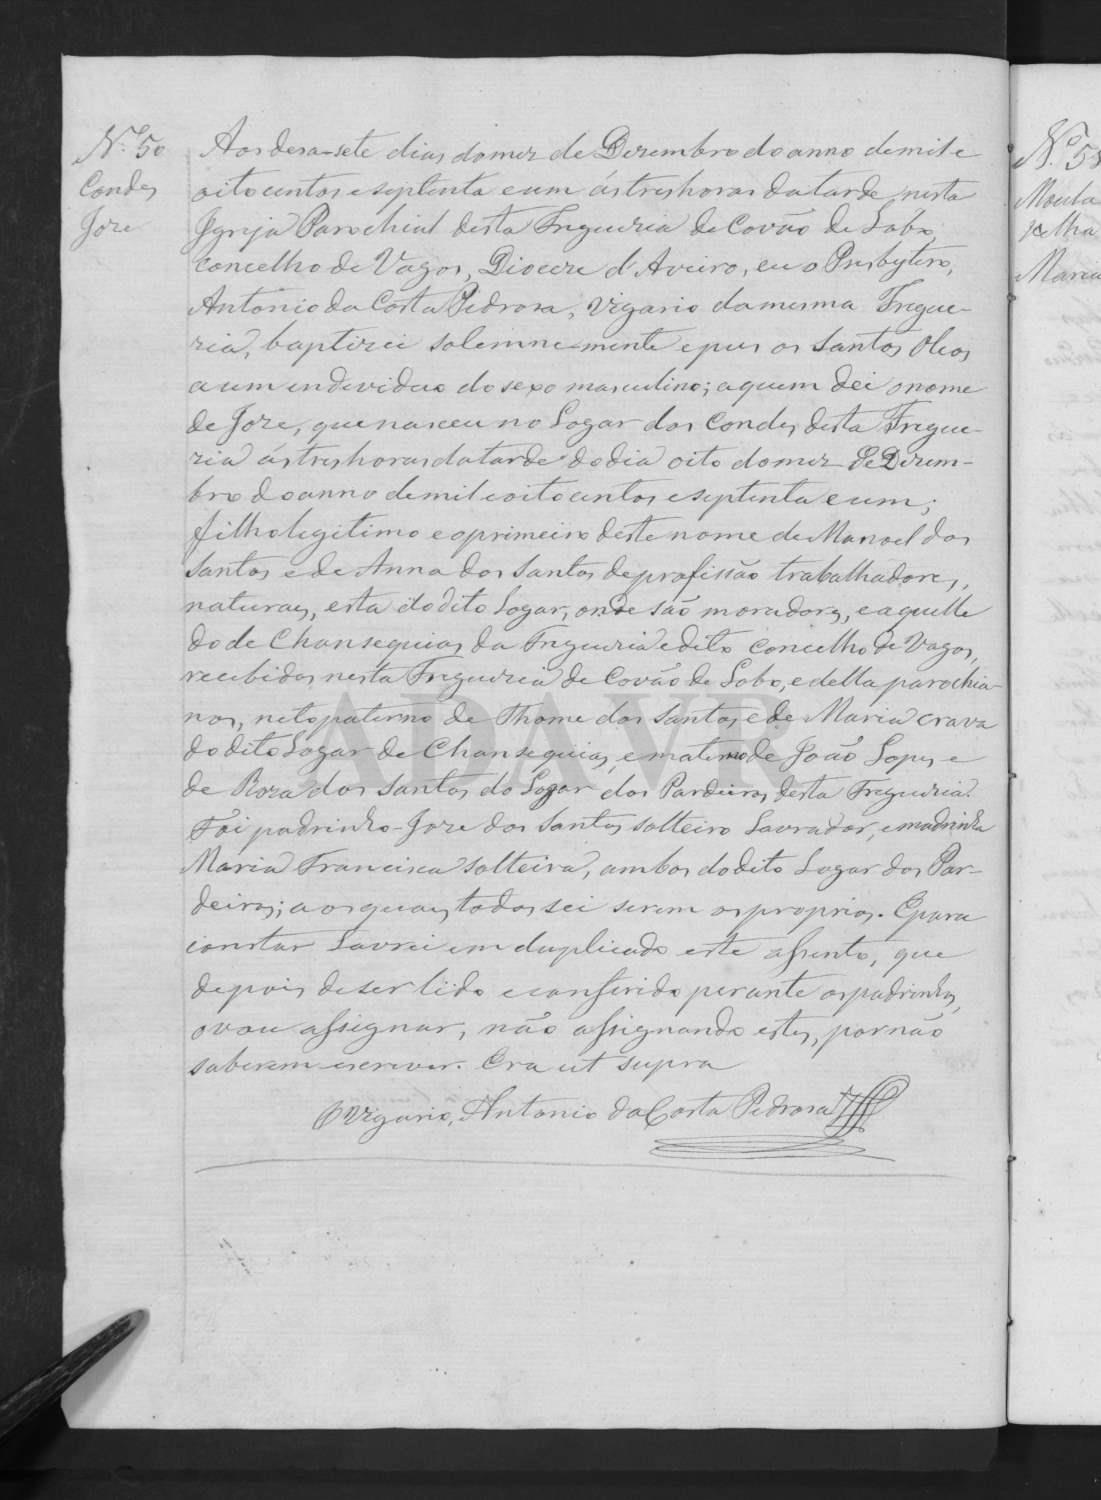 Nº 50
Condes
Joze
Aos desa-sete dias do mez de Dezembro do anno de mil e
oito centos e septenta e um ás tres horas da tarde nesta
Igreja Parochial desta Freguezia de Covão de Lobo,
concelho de Vagos, Diocese d'Aveiro, eu o Presbytero,
Antonio da Costa Pedrosa, Vigario da mesma Fregue-
zia, baptizei solemne-mente e pus os Santos Oleos
a um endeviduo do sexo masculino; a quem dei o nome
de Joze, que nasceu no Logar dos Condes desta Fregue-
zia ás tres horas da tarde do dia oito do mez de Dezem-
bro do anno de mil e oito centos e septenta e um;
filho legitimo e o primeiro deste nome de Manoel dos
Santos e de Anna dos Santos de profissão trabalhadores,
naturaes, esta do dito Logar, onde são moradores, e aquelle
do de Chansequias da Freguezia e dito concelho de Vagos,
recebidos nesta Freguezia de Covão de Lobo, e della parochia-
nos, neto paterno de Thome dos Santos e de Maria crava
do dito Logar de Chansequias, e materno de João Lopes e
de Roza dos Santos do Logar dos Pardeiros desta Freguezia.
Foi padrinho-Joze dos Santos solteiro Lavrador, e madrinha
Maria Francisca solteira, ambos do dito Logar dos Par-
deiros; aos quaes todos sei serem os proprios. E para
constar Lavrei em duplicado este assento, que
depois de ser lido e conferido perante os padrinhos,
o vou assignar, não assignando estes, por não
saberem escrever. Era ut supra
O Vigario, Antonio da Costa Pedrosa
Nº 5
Mouta
velha
Maria
ADAVR